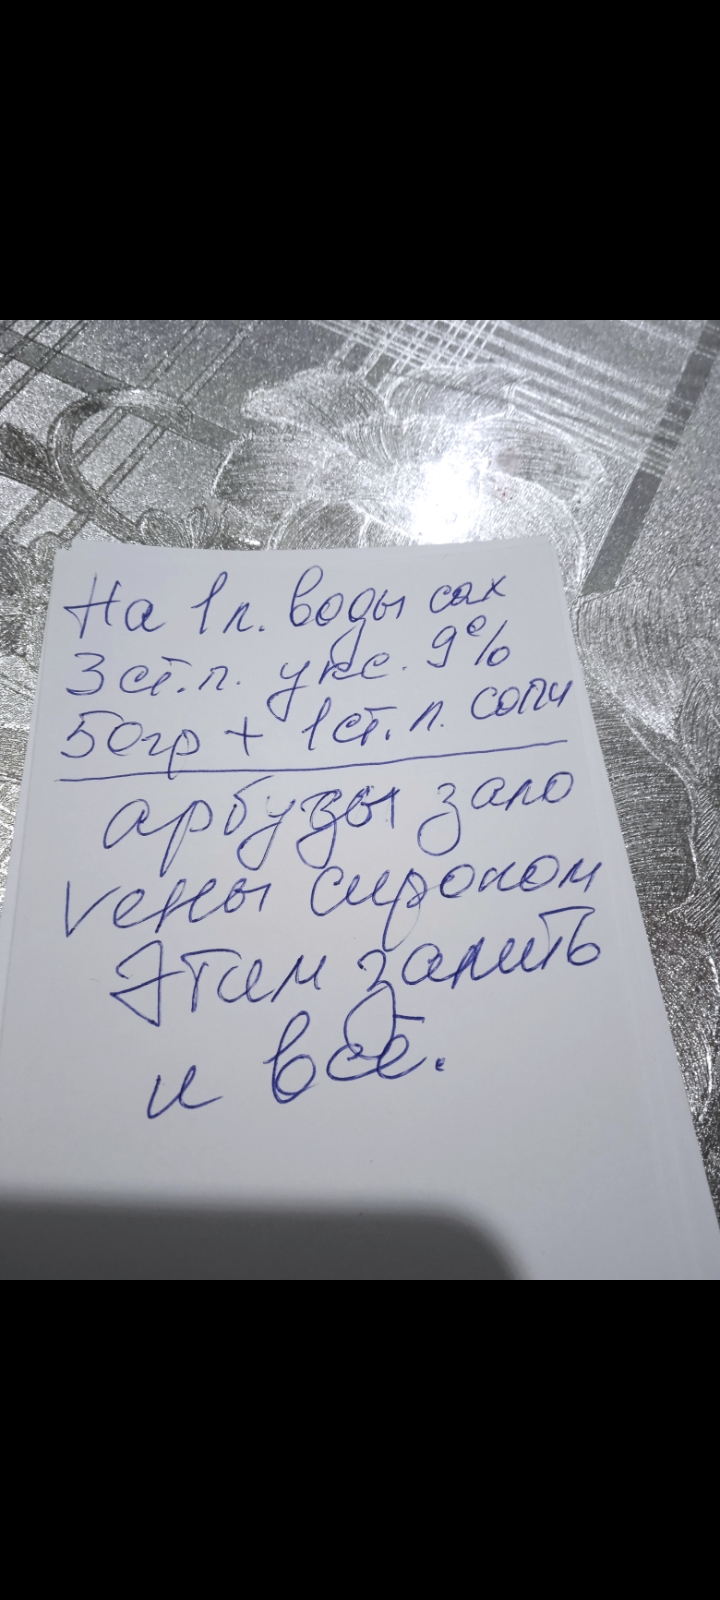 На 1 л. воды сах
3 ст. л. укс. 9%
50 гр + 1 ст. л. соли
арбузы зало
чены сиропом
Этим залить
и всё.